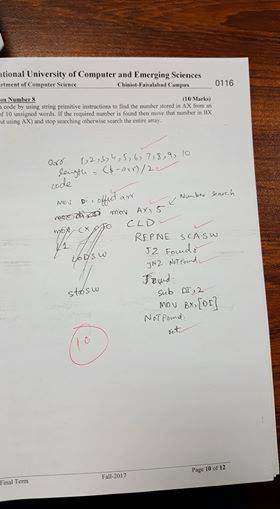 ational University of Computer and Emerging Sciences
rtment of Computer Science Chiniot-Faisalabad Campus 0116
on Number 8 (10 Marks)
code by using string primitive instructions to find the number stored in AX from an
of 10 unsigned words. If the required number is found then move that number in BX
ut using AX) and stop searching otherwise search the entire array.
arr 1,2,3,4,5,6,7,8,9,10
length = ($-arr)/2
code
MOV DI, offset arr
mov AX, 5 Number search
mov CX, 10
CLD
L1
REPNE SCASW
LODSW
JZ Found
JNZ NotFound
Found:
stosw
Sub DI, 2
MOV BX, [DI]
NotFound:
ret
10
Page 10 of 12
Final Term Fall-2017